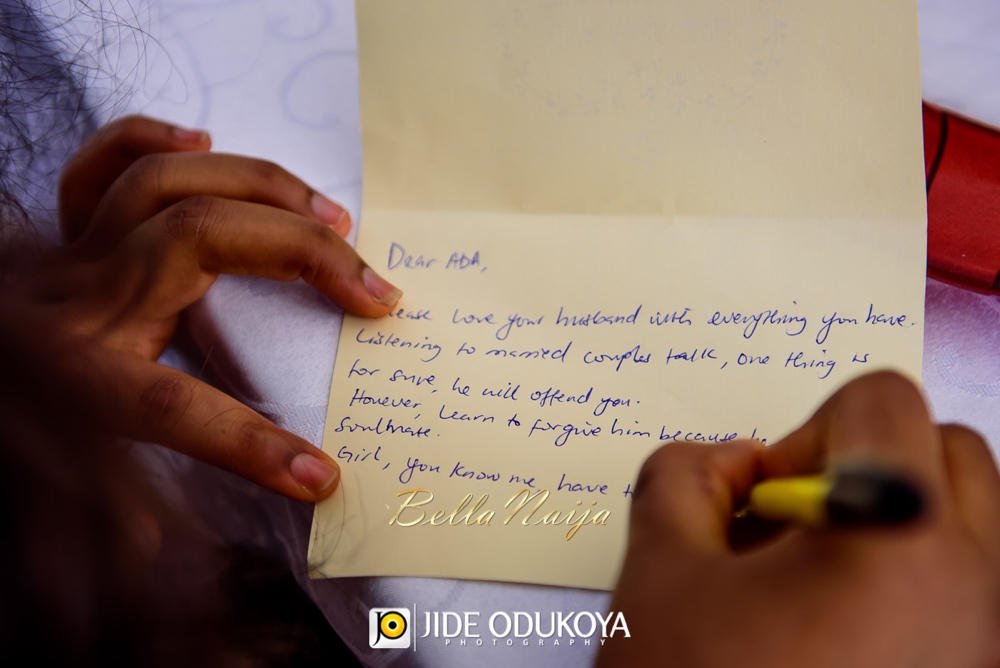 Dear ADA,
lease love your husband with everything you have.
Listening to married couples talk, one thing is
for sure, he will offend you.
However, learn to forgive him because he
Soulmate.
Girl, you know me, have t
BellaNaija
JIDE ODUKOYA
PHOTOGRAPHY